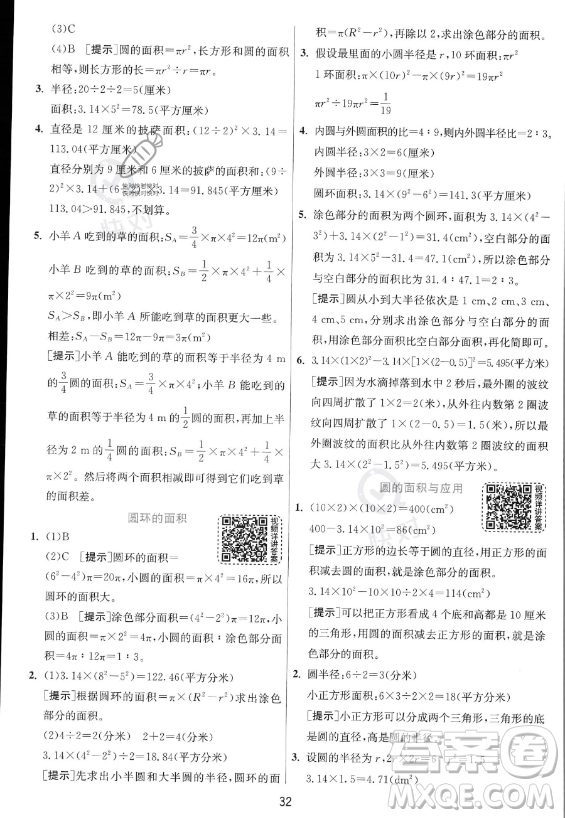 (3)C
(4)B [提示]圆的面积=πr²,长方形和圆的面积
相等,则长方形的长=πr²÷r=πr。
3. 半径:20÷2÷2=5(厘米)
面积:3.14×5²=78.5(平方厘米)
4. 直径是 12 厘米的披萨面积:(12÷2)²×3.14=
113.04(平方厘米)
直径分别为 9 厘米和 6 厘米的披萨的面积和:(9÷
2)²×3.14+(6÷2)²×3.14=91.845(平方厘米)
113.04>91.845,不划算。
5. 小羊 A 吃到的草的面积:S_A=3/4×π×4²=12π(m²)
小羊 B 吃到的草的面积:S_B=1/2×π×4²+1/4×
π×2²=9π(m²)
S_A>S_B,即小羊 A 所能吃到的草的面积更大。
相差:S_A-S_B=12π-9π=3π(m²)
[提示]小羊 A 能吃到的草的面积等于半径为 4 m
的3/4圆的面积:S_A=3/4×π×4²=12π(m²);小羊 B
能吃到的草的面积等于半径为 4 m 的1/2圆的面积与
半径为 2 m 的1/4圆的面积和:S_B=1/2×π×4²+1/4×
π×2²=9π(m²)。两个面积相减即可得到能吃到草
的面积差。
圆环的面积
1. (1)B
(2)C [提示]圆环面积=
(6²-4²)×π=20π,小圆面积=π×4²=16π,所以
大圆面积大。
(3)B [提示]涂色部分面积=(4²-2²)×π=12π,小
圆的面积=π×2²=4π,12π÷4π=3,涂色部分面积
面积=4π×3=12π。
2. (1)3.14×(8²-5²)=122.46(平方分米)
[提示]根据圆环的面积=π×(R²-r²)求出涂色
部分的面积。
(2)4÷2=2(分米) 2+2=4(分米)
3.14×(4²-2²)÷2=18.84(平方分米)
[提示]先求出小半圆和大半圆的半径,圆环的面
积=π×(R²-r²),再除以 2,求出涂色部分的面积。
3. 假设最里面的小圆半径是 r,10 环面积:πr²
1 环面积:π×(10r)²-π×(9r)²=19πr²
πr²÷19πr²=1/19
4. 内圆与外圆面积的比=4∶9,所以半径比=2∶3。
内圆半径:3×2=6(分米)
外圆半径:3×3=9(分米)
圆环面积:3.14×(9²-6²)=141.3(平方分米)
5. 涂色部分的面积为两个圆环,面积=3.14×(2²-
1²)+3.14×(5²-4²)=31.4(cm²),空白部分的面
积=3.14×5²-31.4=47.1(cm²),所以涂色部分
与空白部分的面积比为 31.4∶47.1=2∶3。
[提示]圆从小到大半径依次是 1 cm、2 cm、
4 cm、5 cm,分别求出涂色部分与空白部分的面
积,最后求出涂色部分与空白部分的面积比。
6. 3.14×(1×2)²-3.14×[1×(2-0.5)]²=5.495(平方米)
[提示]因为水滴掉落到水中 2 秒后,最外圈的波纹
向四周扩散了 1×2=2(米),从外往内数第 2 圈波
纹向四周扩散了 1×(2-0.5)=1.5(米),所以最外
圈的波纹与从外往内数第 2 圈波纹之间的面积为
3.14×2²-3.14×1.5²=5.495(平方米)。
圆的面积与应用
1. (10×2)×(10×2)=400(cm²)
400-3.14×10²=86(cm²)
[提示]正方形的边长等于圆的直径,用正方形的面
积减去圆的面积就是涂色部分的面积。
3.14×10²-10×10÷2×4=114(cm²)
[提示]可以把正方形看成 4 个底和高都是 10 厘米
的三角形,用圆的面积减去正方形的面积就是涂色
部分的面积。
2. 圆半径:6÷2=3(分米)
小正方形面积:6×3÷2×2=18(平方分米)
[提示]小正方形可以变成两个三角形,三角形的底
是圆的直径,高是圆的半径。
3. 设圆的半径为 r,2r×r÷2=
3.14×1.5=4.71(dm²)
视频详讲答案
视频详讲答案
答案圈
32